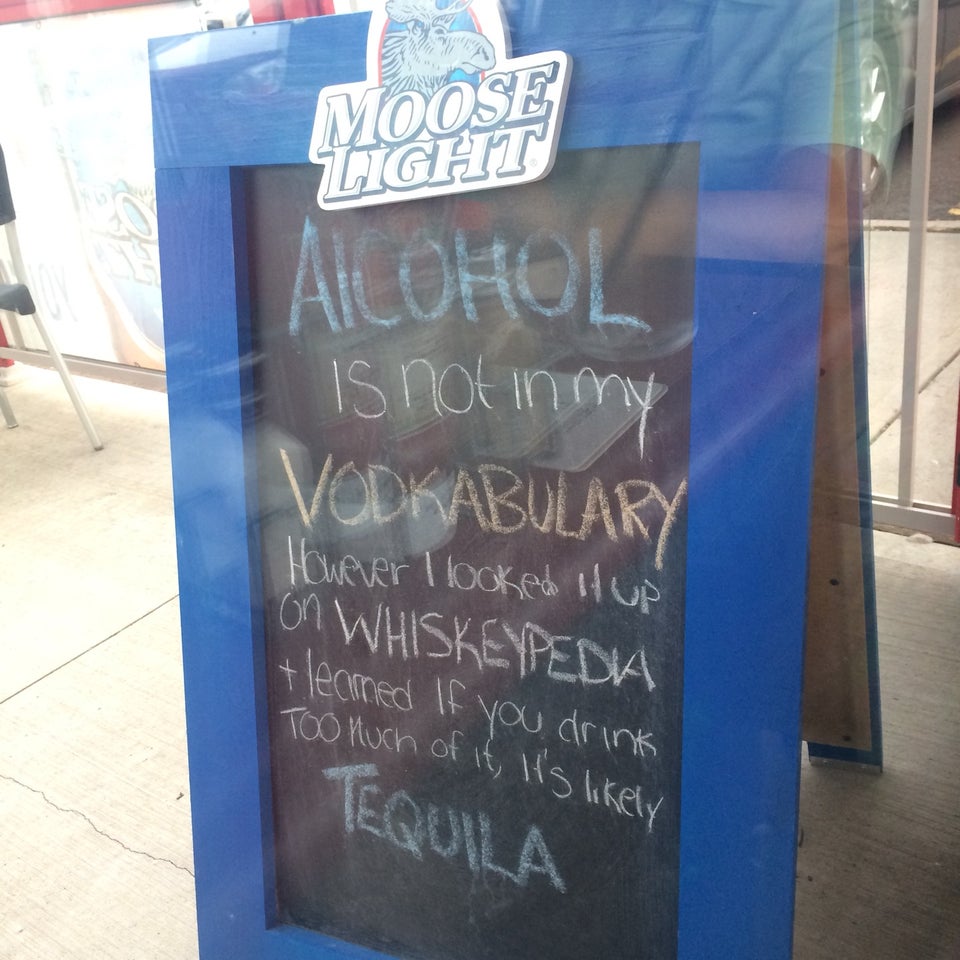 MOOSE
LIGHT
AlCOHOL
is not in my
VODKABULARY
However I looked it up
on WHISKEYPEDIA
+ learned If you drink
Too Much of it, it's likely
TEQUILA